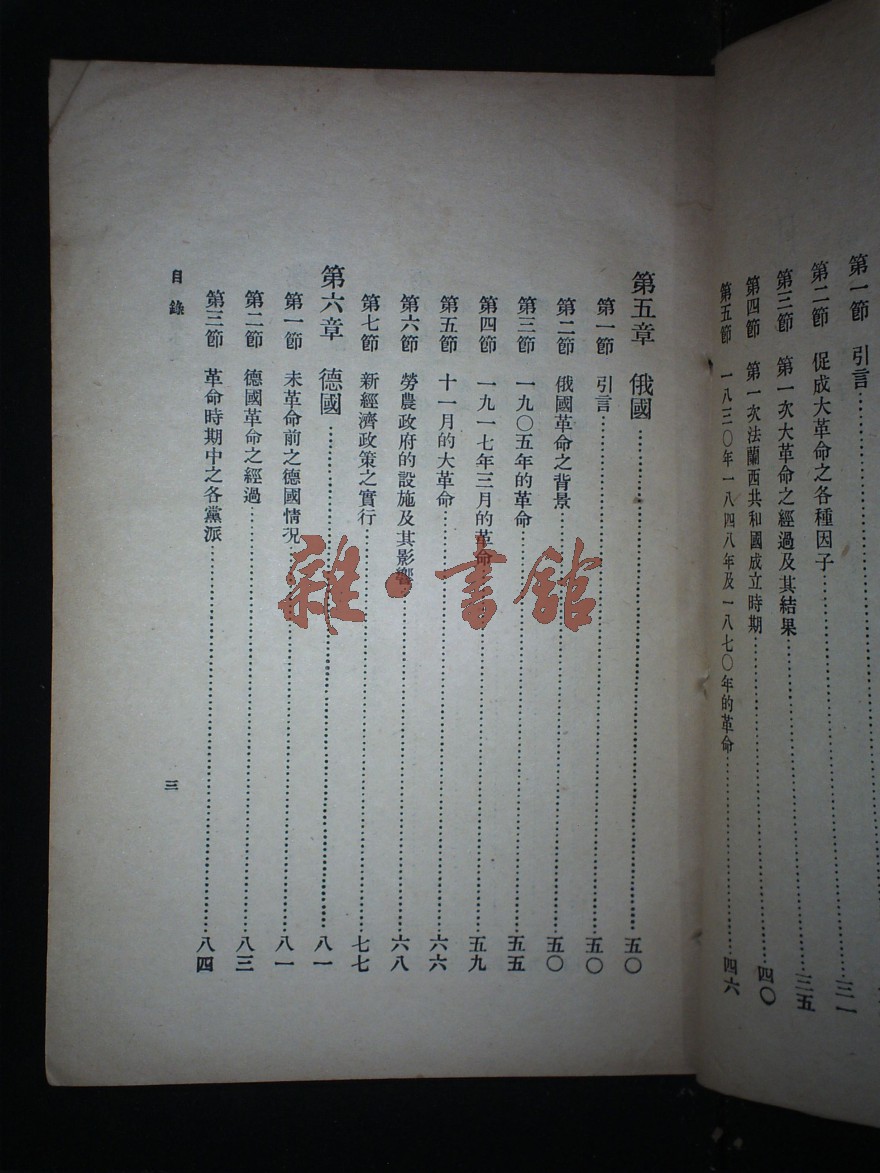 第一節 引言
第二節 促成大革命之各種因子 三一
第三節 第一次大革命之經過及其結果 三五
第四節 第一次法蘭西共和國成立時期 四〇
第五節 一八三〇年一八四八年及一八七〇年的革命 四六
第五章 俄國 五〇
第一節 引言 五〇
第二節 俄國革命之背景 五〇
第三節 一九〇五年的革命 五五
第四節 一九一七年三月的革命 五九
第五節 十一月的大革命 六六
第六節 勞農政府的設施及其影響 六八
第七節 新經濟政策之實行 七七
第六章 德國 八一
第一節 未革命前之德國情况 八一
第二節 德國革命之經過 八三
第三節 革命時期中之各黨派 八四
目錄
三
雜·書館